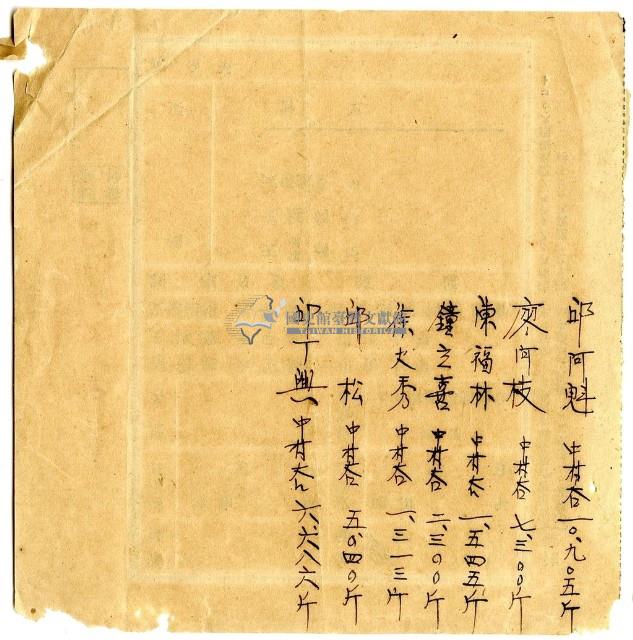 邱阿魁 中村谷 一〇、九〇五斤
廖阿枝 中村谷 七、三〇〇斤
陳福林 中村谷 一、五四五斤
鐘立喜 中村谷 二、三〇〇斤
徐火秀 中村谷 一、三一三斤
邱 松 中村谷 五、〇四〇斤
邱丁興 中村谷 六、六八六斤
國史館臺灣文獻館
TAIWAN HISTORICA